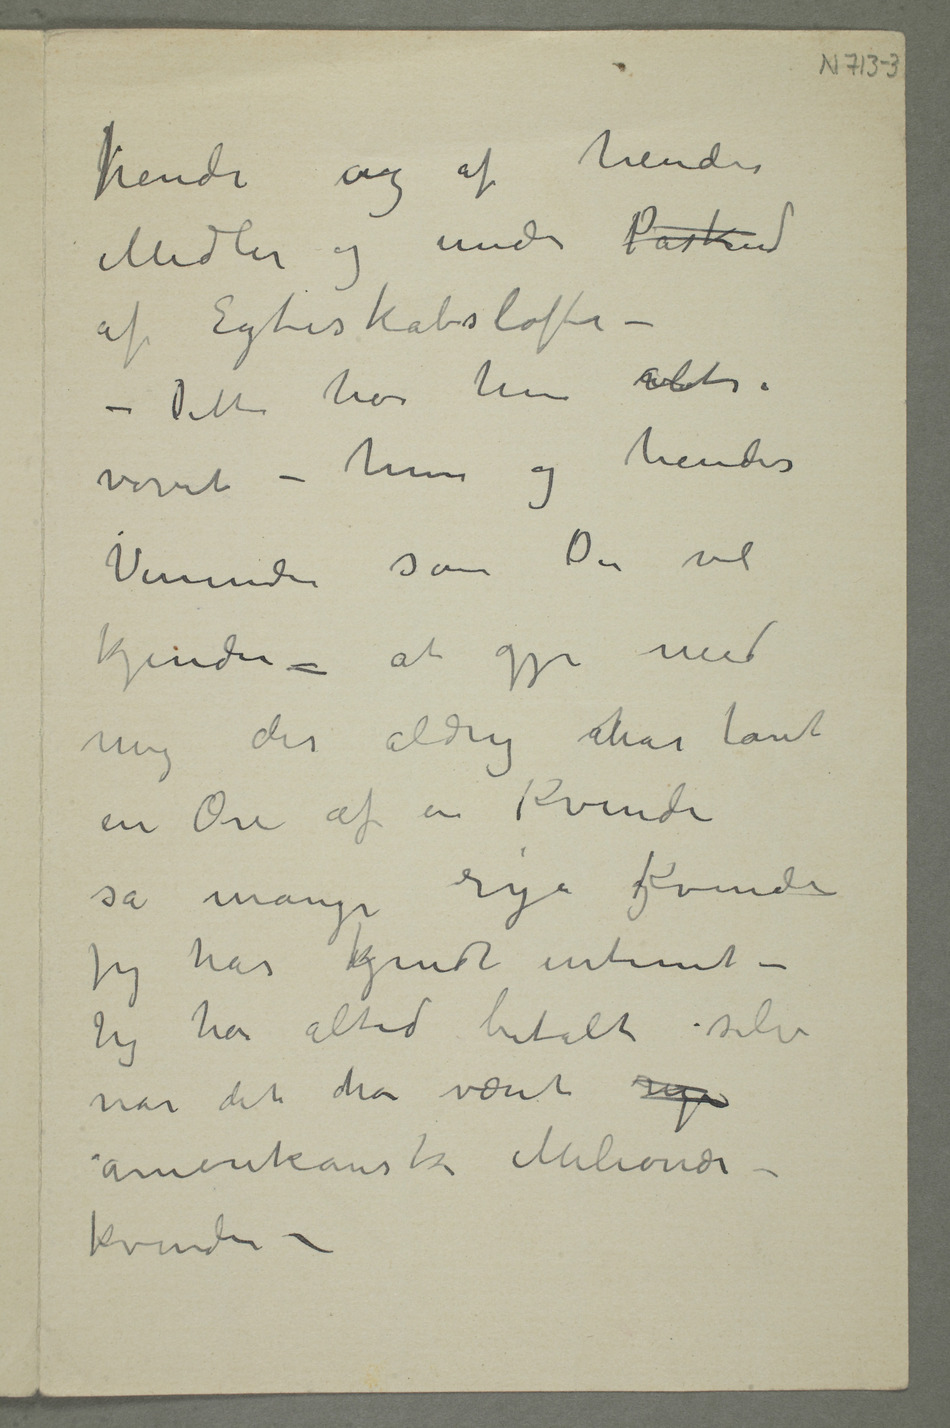 N 713-3
hende og af hendes
Midler og under Påskud
af Egteskabsløfter –
– Dette har hun altså
vovet – hun og hendes
Veninder som Du vel
kjender – at gjøre med
mig der aldrig har lånt
en Øre af en Kvinde
så mange rige Kvinder
jeg har kjendt intimt –
Jeg har altid betalt selv
når det har været rige
amerikanske Milionær –
kvinder –